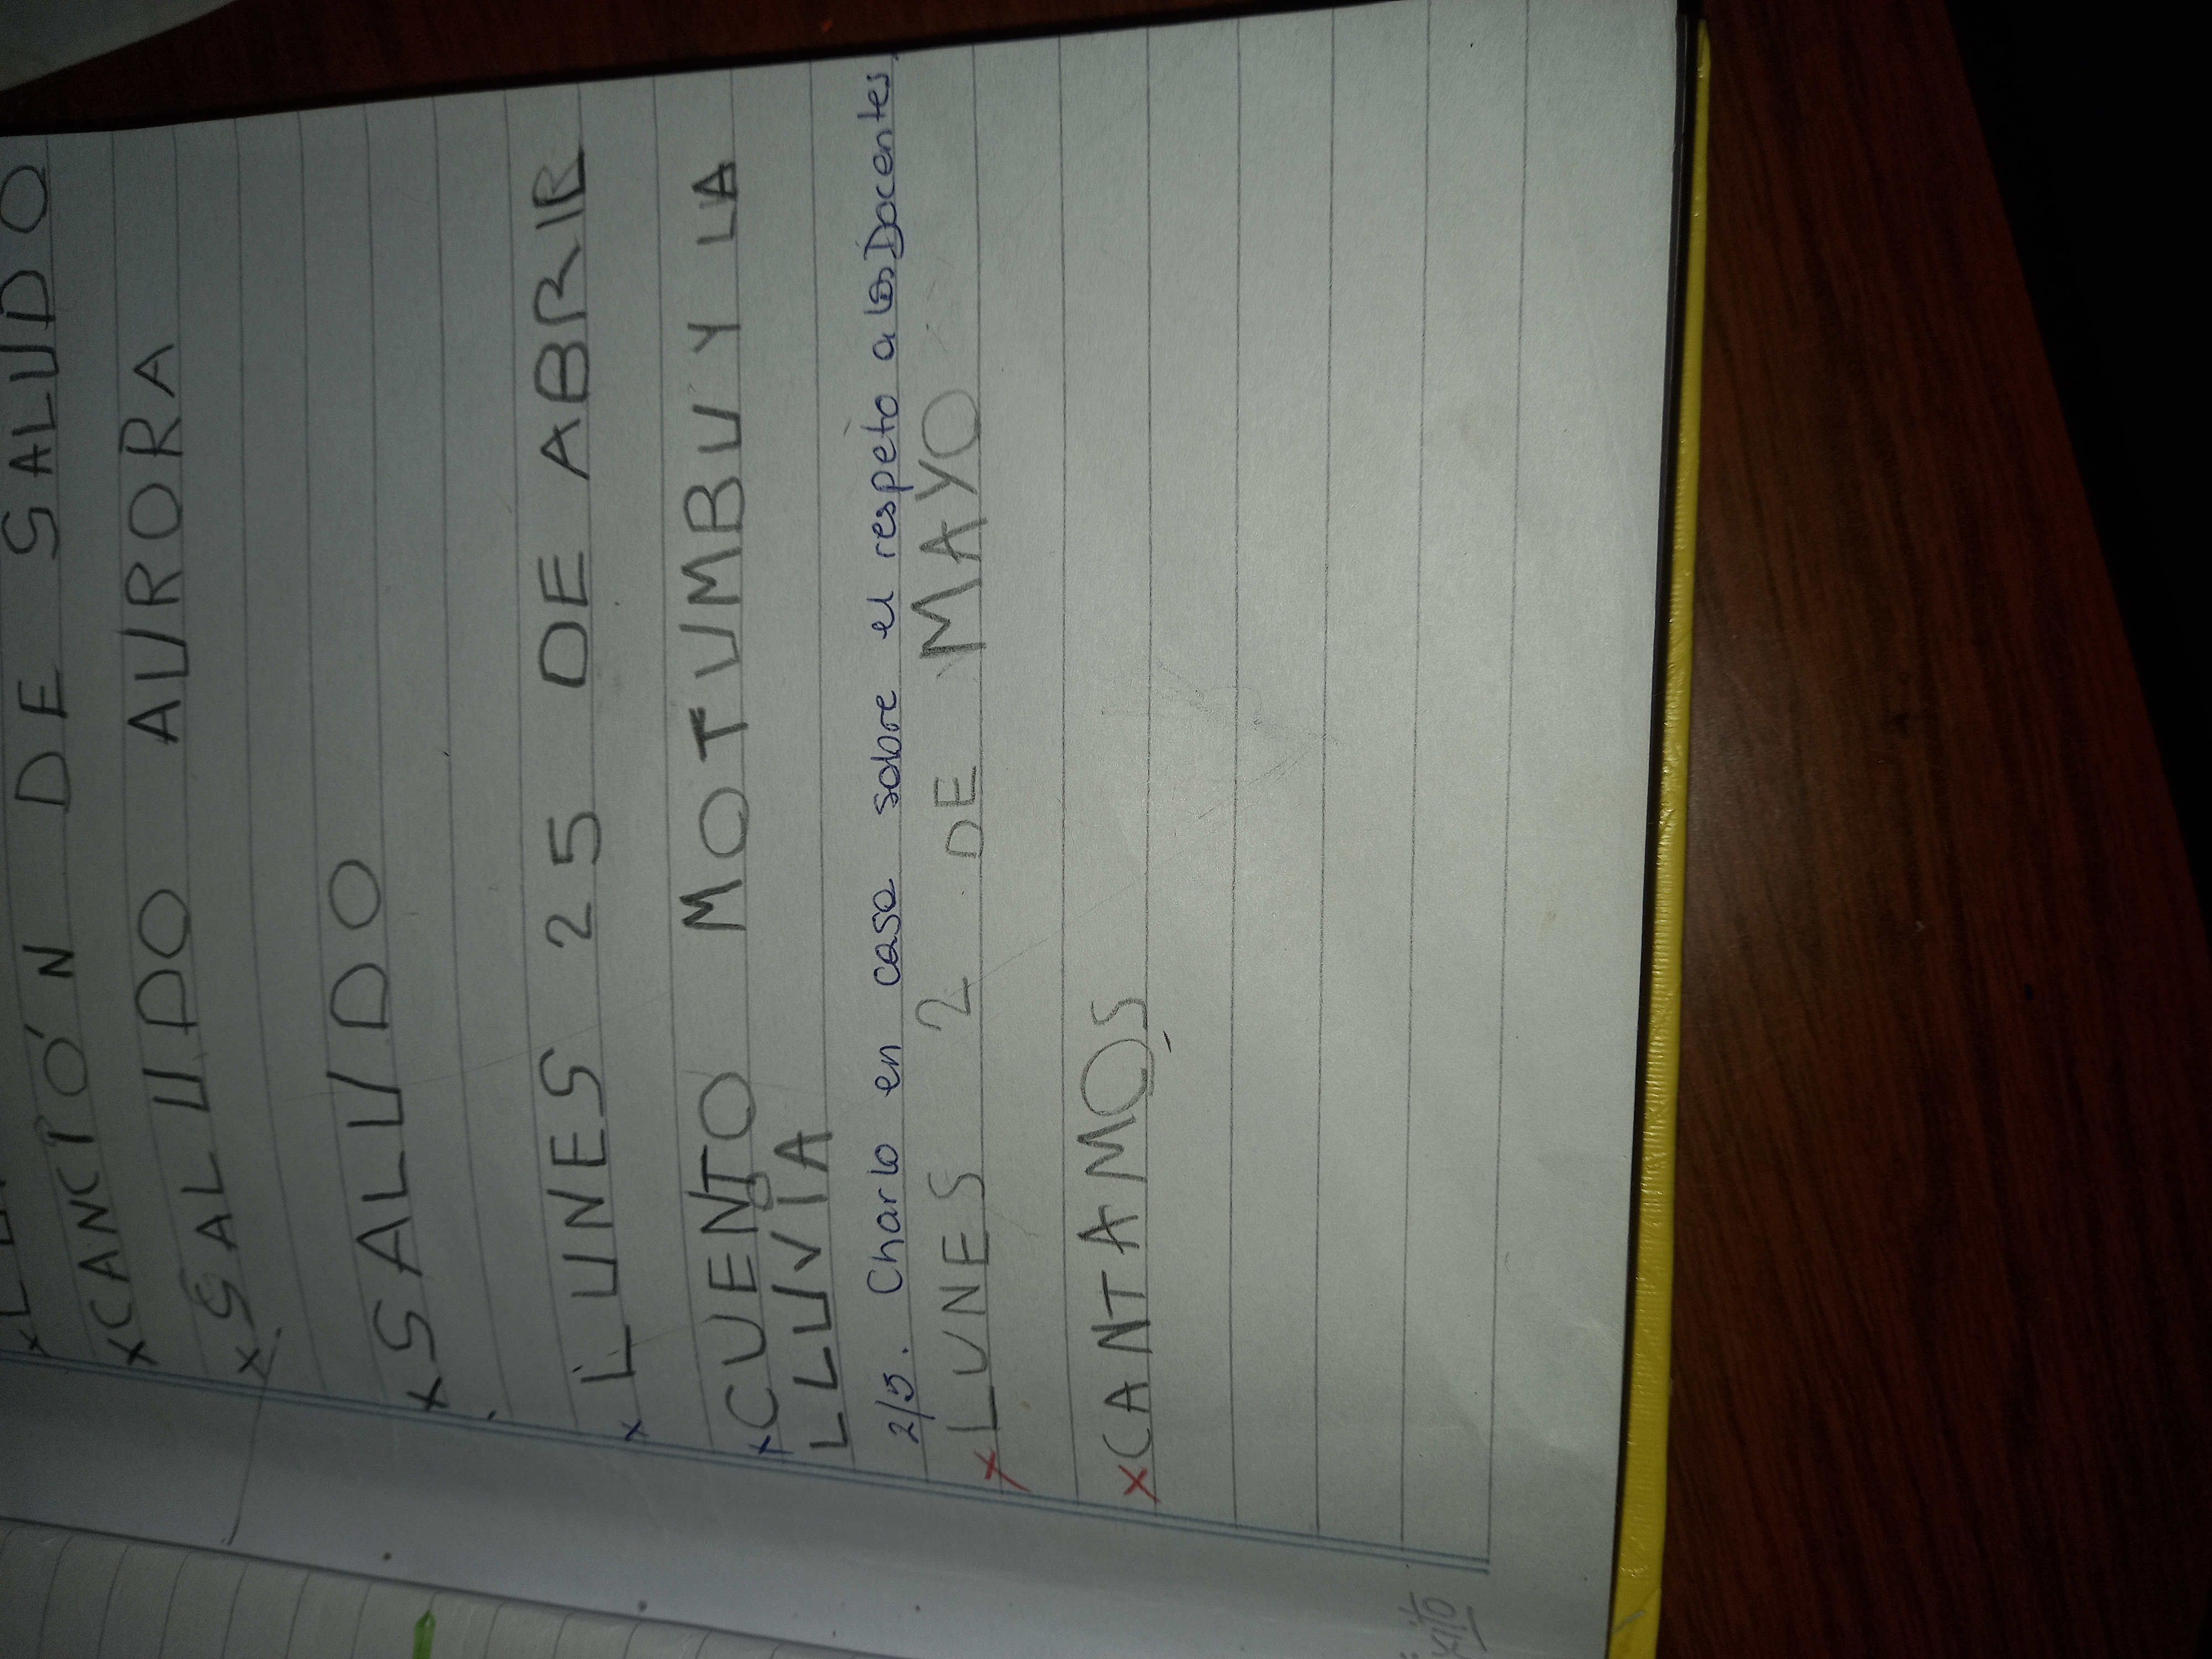 x CANCIÓN DE SALUDO
x SALUDO AURORA
x SALUDO
x LUNES 25 DE ABRIL
x CUENTO MOTUMBU Y LA
LLUVIA
2/5. Charlo en casa sobre el respeto a los Docentes.
x LUNES 2 DE MAYO
x CANTAMOS